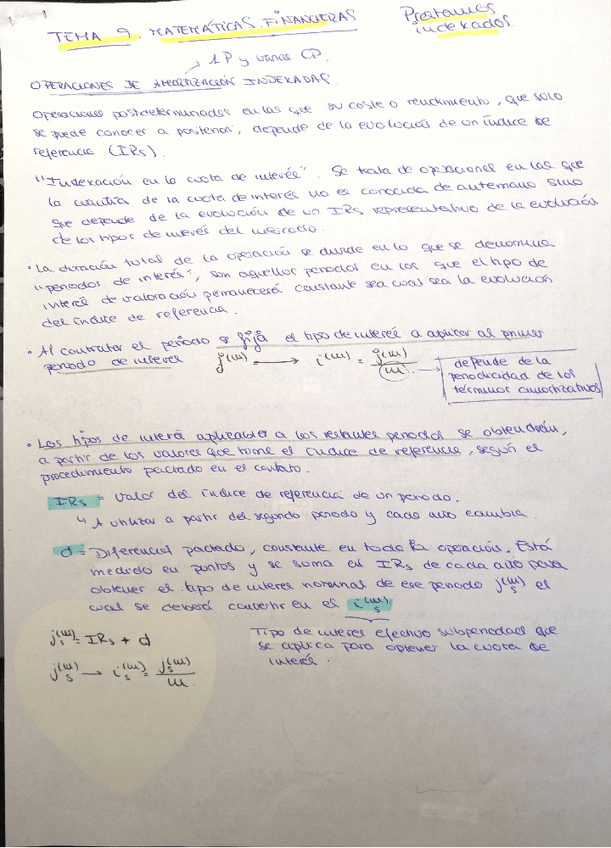 TEMA 9. MATEMÁTICAS FINANCIERAS
Préstamos indexados.
→ 1P y varias CP.
OPERACIONES DE AMORTIZACIÓN INDEXADAS.
Operaciones postdeterminadas en las que su coste o rendimiento, que solo
se puede conocer a posteriori, depende de la evolución de un índice de
referencia (IRs).
"Indexación en la cuota de interés". Se trata de operaciones en las que
la cuantía de la cuota de interés no es conocida de antemano sino
que depende de la evolución de un IRs representativo de la evolución
de los tipos de interés del mercado.
• La duración total de la operación se divide en lo que se denomina
"periodos de interés", son aquellos periodos en los que el tipo de
interés de valoración permanecerá constante sea cual sea la evolución
del índice de referencia.
• Al contratar el periodo se fija el tipo de interés a aplicar al primer
periodo de interés j(m) → i(m) = j(m)/m → depende de la
periodicidad de los
términos amortizativos
• Los tipos de interés aplicables a los restantes periodos se obtendrán,
a partir de los valores que tome el índice de referencia, según el
procedimiento pactado en el contrato.
IRs = Valor del índice de referencia de un periodo.
↳ A utilizar a partir del segundo periodo y cada año cambia.
d = Diferencial pactado, constante en toda la operación. Está
medido en puntos y se suma en IRs de cada año para
obtener el tipo de interés nominal de ese periodo js(m) el
cual se deberá convertir en el is(m)
Tipo de interés efectivo subperiodal que
se aplica para obtener la cuota de
interés.
js(m) = IRs + d
js(m) → is(m) = js(m)/m